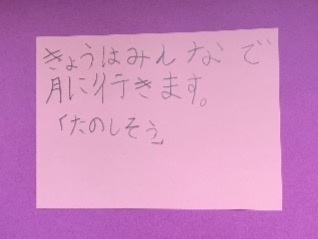 きょうはみんなで
月に行きます。
「たのしそう」